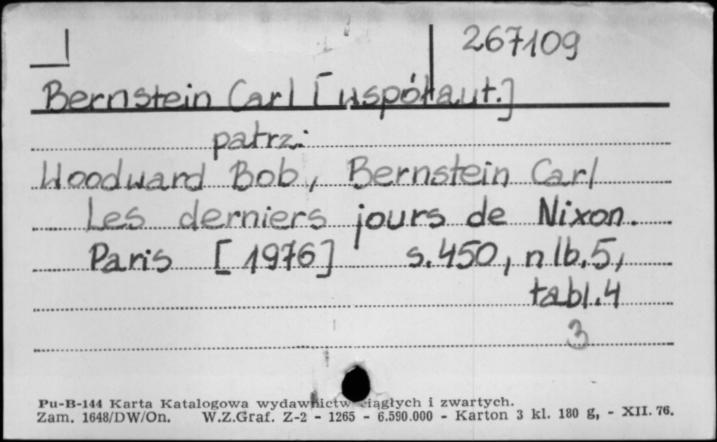 267109
Bernstein Carl [współaut.]
patrz:
Woodward Bob, Bernstein Carl
Les derniers jours de Nixon.
Paris [1976] s.450, nlb.5,
tabl.4
3
Pu-B-144 Karta Katalogowa wydawnictw ciągłych i zwartych.
Zam. 1648/DW/On. W.Z.Graf. Z-2 - 1265 - 6.590.000 - Karton 3 kl. 180 g, - XII. 76.